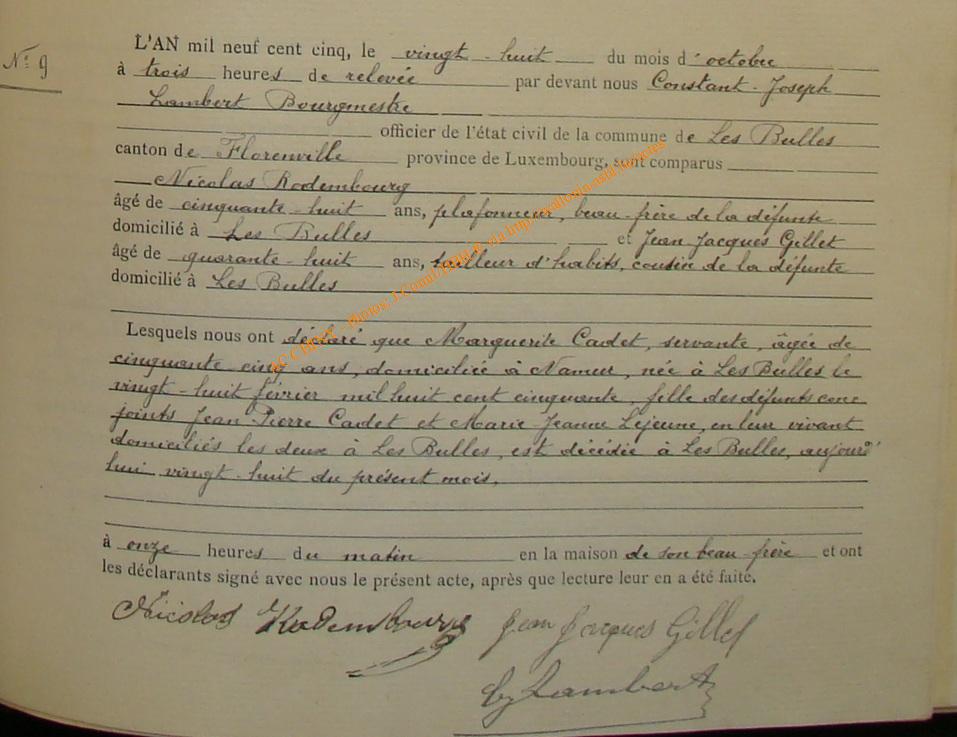 N° 9
L'AN mil neuf cent cinq, le vingt-huit du mois d'octobre
à trois heures de relevée par devant nous Constant-Joseph
Lambert Bourgmestre
officier de l'état civil de la commune de Les Bulles
canton de Florenville province de Luxembourg, sont comparus
Nicolas Rodembourg
âgé de cinquante-huit ans, plafonneur, beau-frère de la défunte
domicilié à Les Bulles et Jean Jacques Gillet
âgé de quarante-huit ans, tailleur d'habits, cousin de la défunte
domicilié à Les Bulles
Lesquels nous ont déclaré que Marguerite Cadet, servante, âgée de
cinquante cinq ans, domiciliée à Namur, née à Les Bulles le
vingt-huit février mil huit cent cinquante, fille des défunts con
joints Jean Pierre Cadet et Marie-Jeanne Lejeune, en leur vivant
domiciliés les deux à Les Bulles, est décédée à Les Bulles, aujourd'
hui vingt-huit du présent mois,
à onze heures du matin en la maison de son beau-frère et ont
les déclarants signé avec nous le présent acte, après que lecture leur en a été faite.
Nicolas Rodembourg Jean Jacques Gillet
Lambert